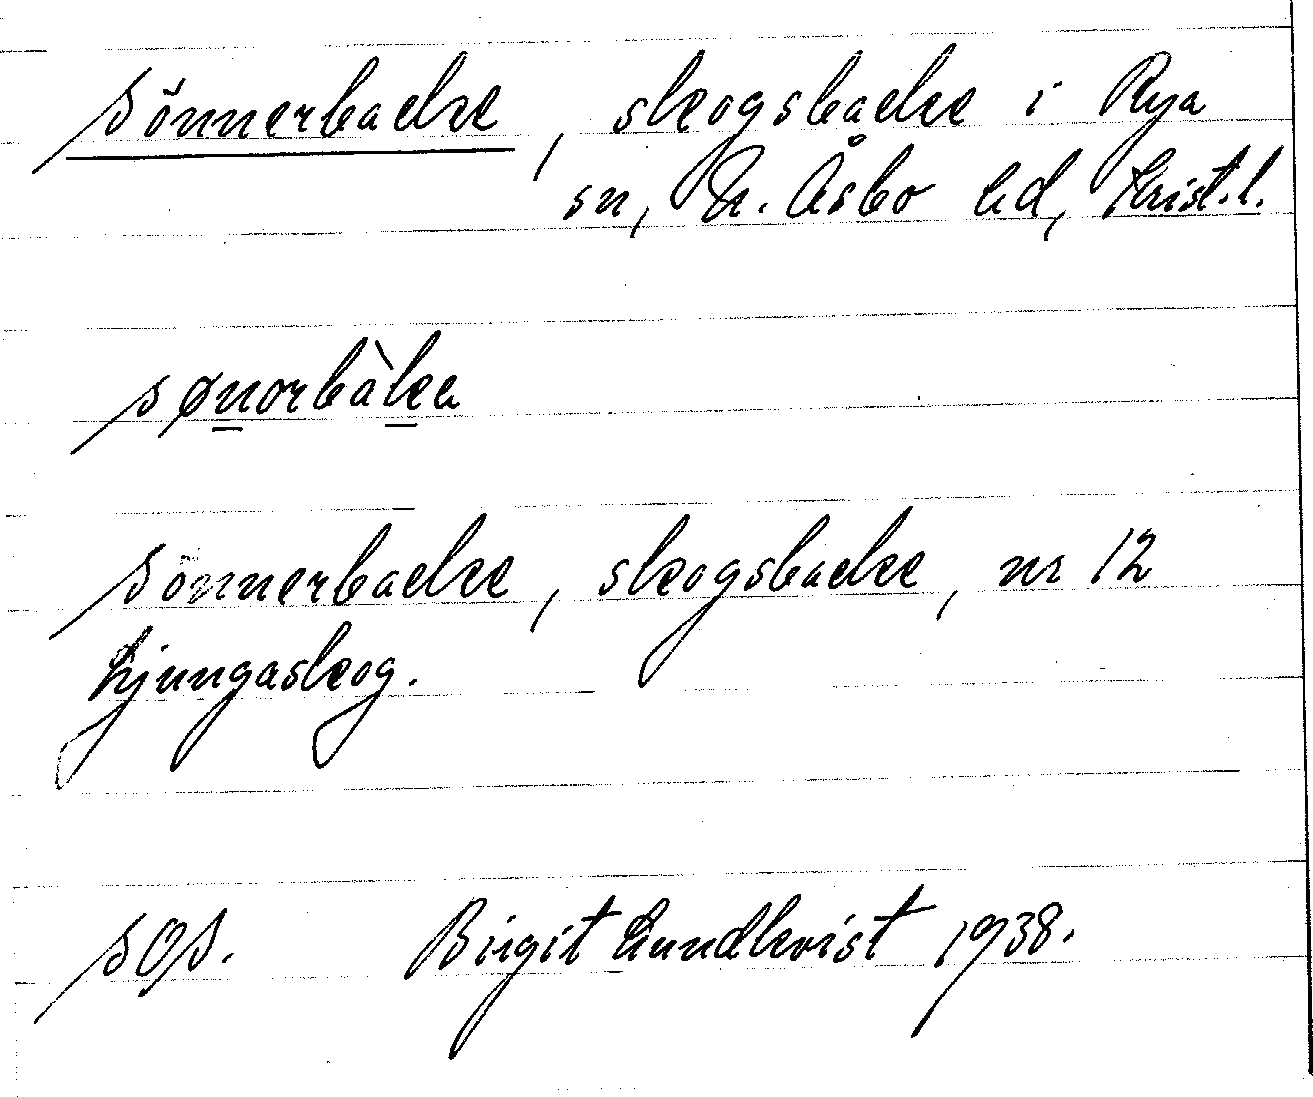 Sönnerbacke, skogsbacke i Rya
sn, N. Åsbo hd, Krist.l.
sønorbàka
Sönnerbacke, skogsbacke, nr 12
Ljungaskog.
SOS. Birgit Lundkvist 1938.